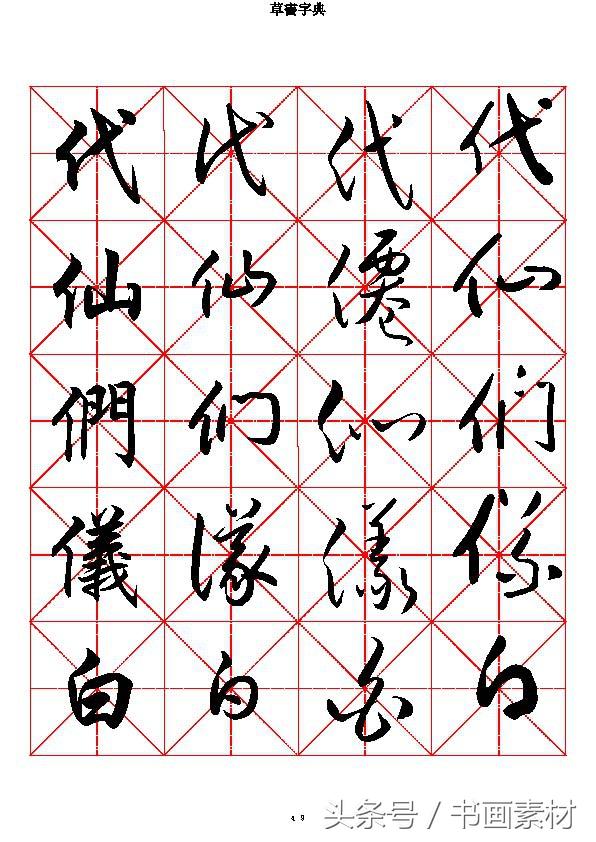 草書字典
代 代 代 代
仙 仙 僊 仙
們 们 们 们
儀 儀 儀 儀
白 白 白 白
49
头条号 / 书画素材